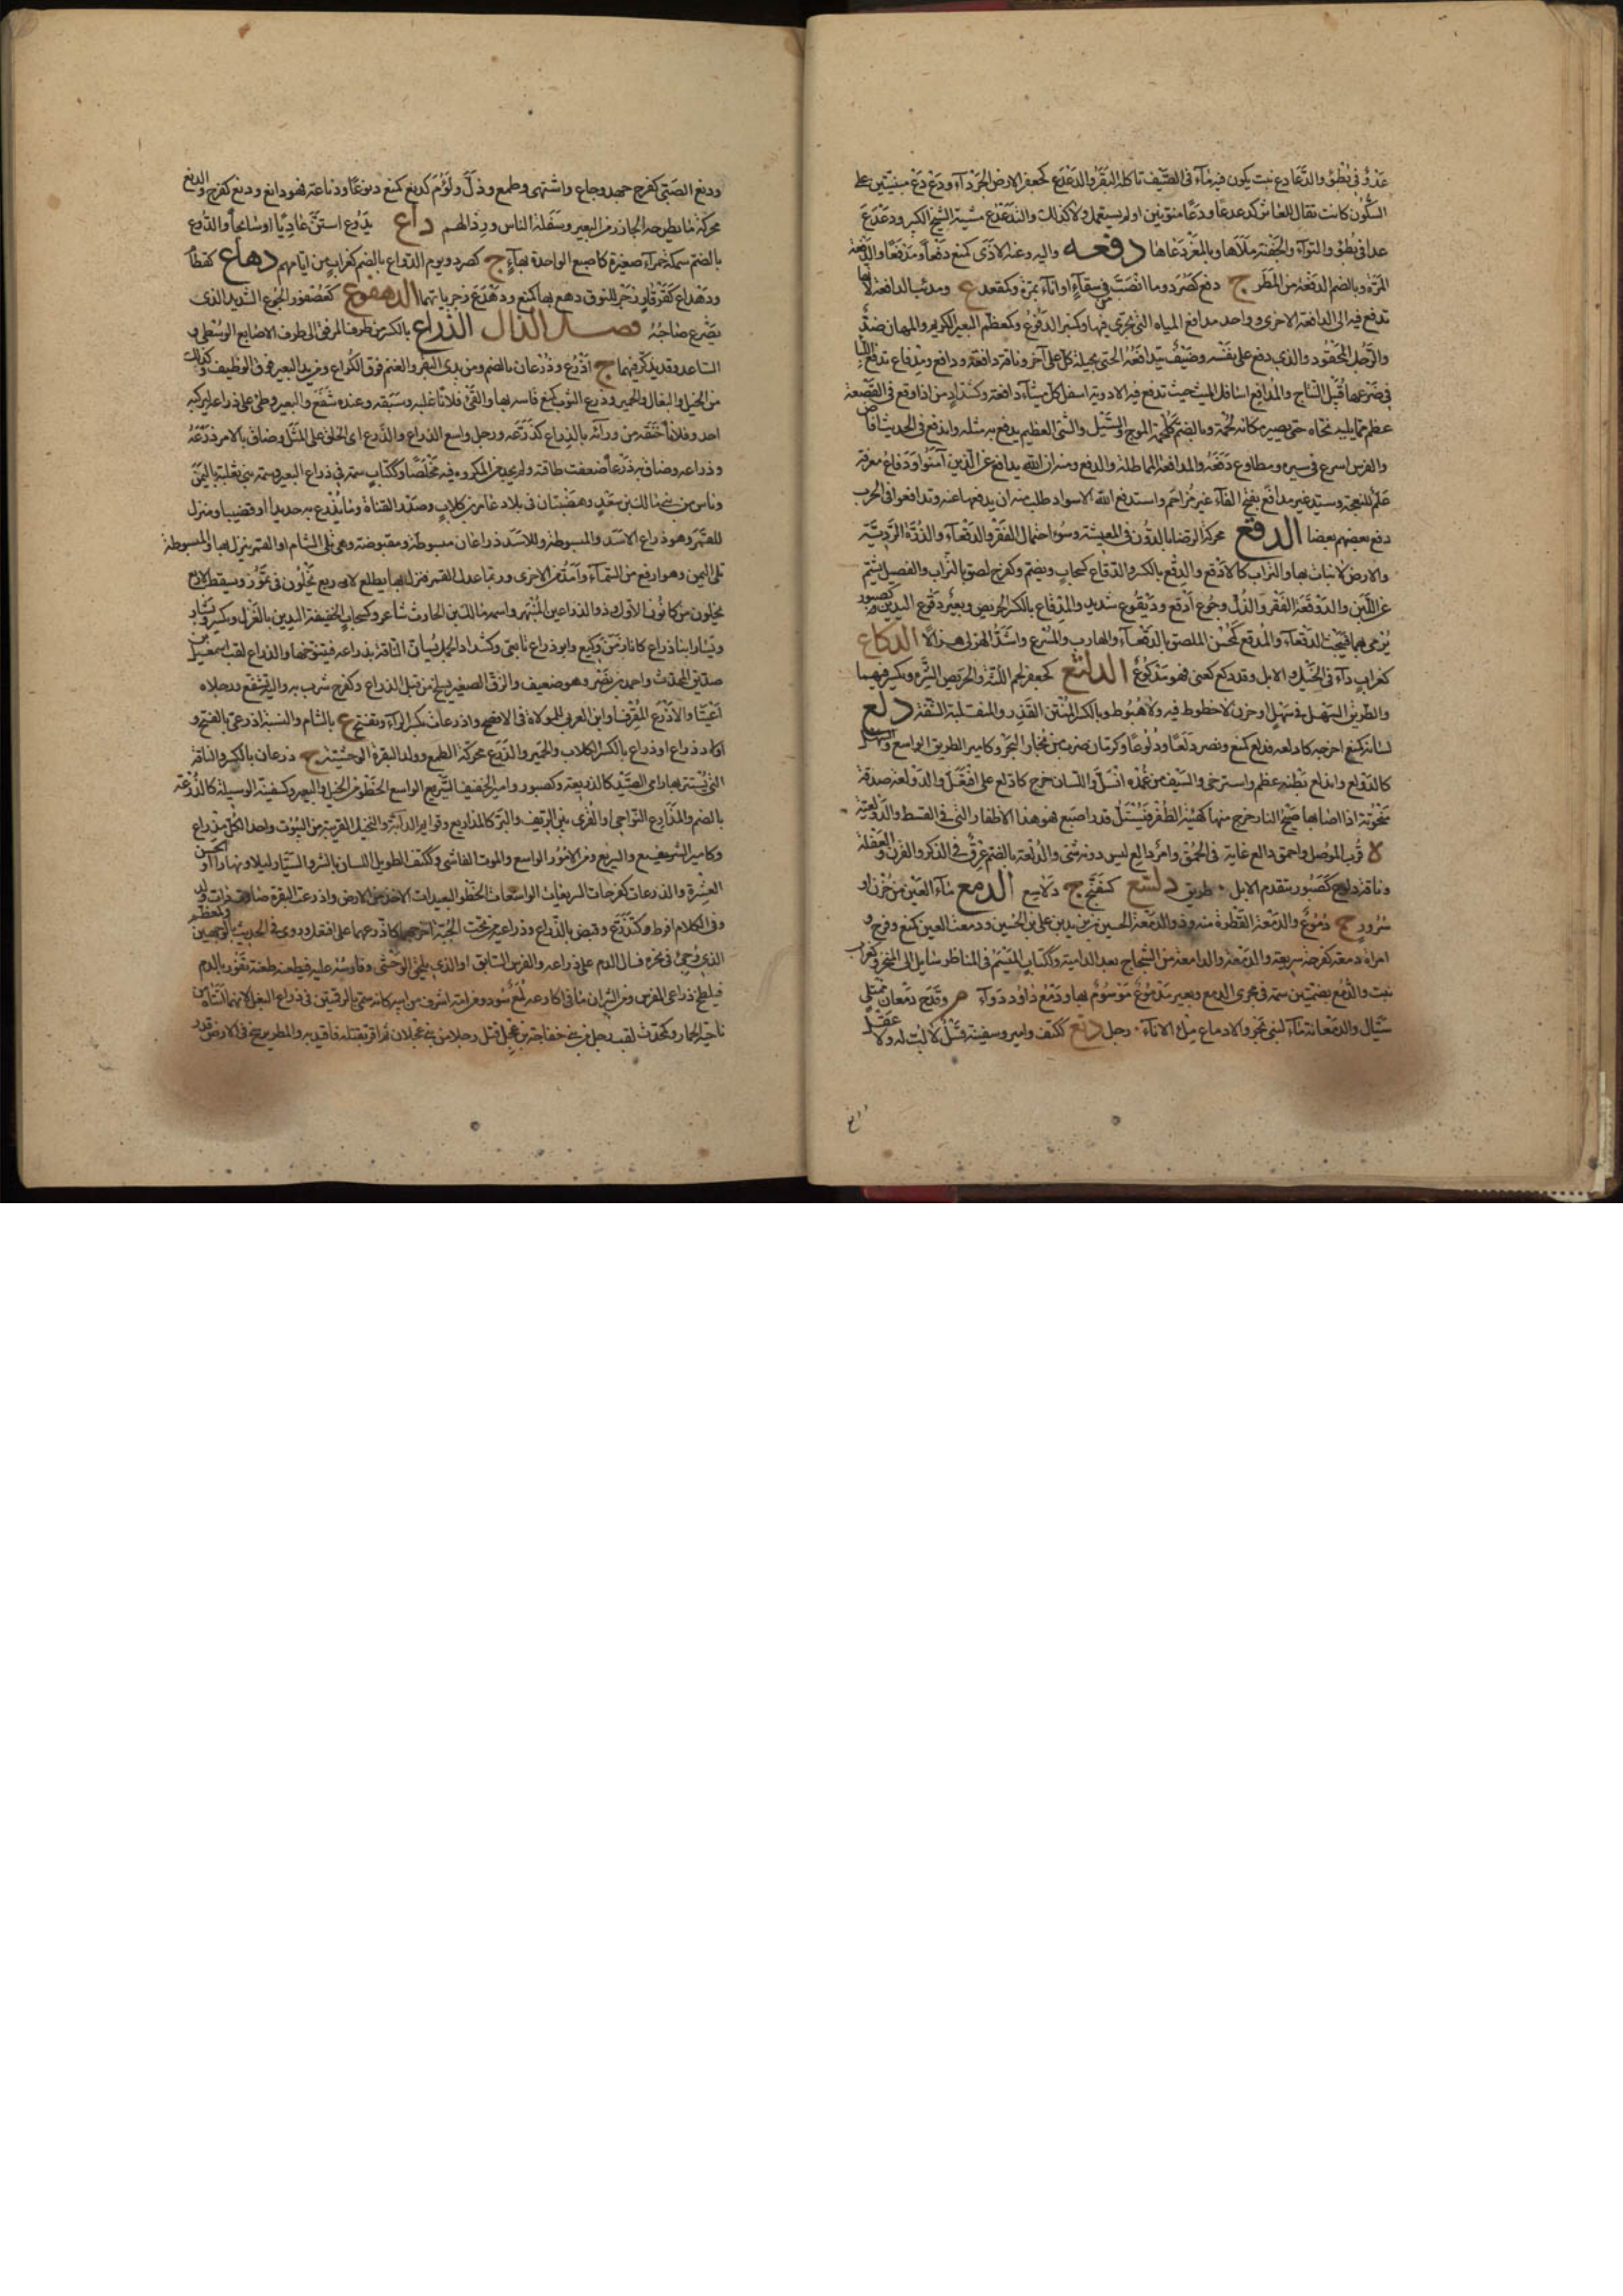 عدو في بطؤ والدعادع نبت يكون فيه مآء في الصيف تاكله البقر والدعدع كجعفر الارض الجردآء ودع دع مبنيتين على
السكون كانت تقال للعاثر كدعدعا ودعا منونين اولم يستعمل والدعدع مشية الشيخ الكبير ودعدع
عدا في بطؤ والتوآء والجفنة ملاها وبالمعز دعاها دفعه واليه وعنه الاذى كمنع دفعا ومدفعا والدفعة
المرة وبالضم الدفعة من المطر ج دفع كصرد وما انصب من سقآء او انآء بمرة وكمقعد ع ومدفع الدافعة لانها
تدفع فيه الى الدافعة الاخرى وواحد مدافع المياه التي تجري فيها وكمنبر الدفوع وكمعظم البعير الكريم والمهان ضد
والرجل المحقود والذي دفع عن نفسه وضيف يتدافعه الحي يحيله كل على آخر وناقة دافعة ودافع ومدفاع تدفع اللبا
في ضرعها قبيل النتاج والمدافع اسافل الميث حيث تدفع فيه الاودية اسفل كل ميثآء دافعة وكشداد من اذا وقع في القصعة
عظم مما يليه نحاه حتى يصير مكانه لحمة وبالضم الموج والسيل والشئ العظيم يدفع به مثله واندفع في الحديث افاض
والفرس اسرع في سيره ومطاوع دفعه والمدافعة المماطلة والدفع ومنه ان الله يدافع عن الذين آمنوا ودفاع معرفة
علم للنعجة وسيد غير مدافع بفتح الفآء غير مزاحم واستدفع الله الاسواء طلب منه ان يدفعها عنه وتدافعوا في الحرب
دفع بعضهم بعضا الدقع محركة الرضا بالدون في المعيشة وسوء احتمال الفقر والدقعآء والذرة الردية
والارض لا نبات بها والتراب كالادقع والدقع بالكسر والدقاع كسحاب ويضم وكفرح لصق بالتراب والفصيل بشم
عن اللبن والدوقعة الفقر والذل وجوع ادقع وديقوع شديد والمدقاع بالكسر الحريص وبعير دقوع اليدين كصبور
يرمي بهما فيبحث الدقعآء والمدقع كمحسن الملصق بالدقعآء والهارب والمسرع واشد الهزلى هزالا الدكاع
كغراب دآء في الخيل والابل وقد دكع كعني فهو مدكوع الدلثع كجعفر لحم اللثة والحريص الشره وبكسر فيهما
والطريق السهل في سهل او حزن لا حطوط فيه ولا هبوط وبالكسر المنتن القذر والمنقلبة الشفة دلع
لسانه كمنع اخرجه كادلعه فدلع كمنع ونصر دلعا ودلوعا وكرمان ضرب من محار البحر وكامير الطريق الواسع السهل
كالدولع واندلع بطنه عظم واسترخى والسيف من غمده انسل واللسان خرج كادلع على افتعل والدولعة صدفة
متحوية اذا اصابها ضبح النار خرج منها كهيئة الظفر فيستل قدر اصبع فهو هذا الاظفار التي في القسط والدولعية
ة قرب الموصل واحمق دالع غاية في الحمق وامر دالع ليس دونه شئ والدلعة بالضم عرق في الذكر والقرن والعفلة
وناقة دلوع كصبور تتقدم الابل طريق دلنع كسفنج ج دلانيع الدمع مآء العين من حزن او
سرور ج دموع والدمعة القطرة منه وذو الدمعة الحسين بن زيد بن علي بن الحسين ودمعت العين كمنع وفرح و
امراة دمعة كفرحة سريعة الدمعة والدامعة من الشجاج بعد الدامية وككتاب الميسم في المناظر سايل الى المنخر وكغراب
نبت والدمع بضمتين سمة في مجرى الدمع وبعير مدموع موسوم بها ودمع داود دوآء مر وقدح دمعان ممتلئ
سيال والدمعانة مآءة لبني بحر والادماع ملء الانآء رجل دنع ككتف وامير وسفينة فسل لا لب له ولا عقل
ودنع الصبي كفرح جهد وجاع واشتهى وطمع وذل ولؤم كدنع كمنع دنوعا ودناعة فهو دانع ودنع كفرح والدنع
محركة ما يطرحه الجازر من البعير وسفلة الناس ورذالهم داع يدوع استن عاديا او سابحا والدوع
بالضم سمكة حمرآء صغيرة كاصبع الواحدة بهآء ج كصرد ويوم الدواع بالضم كغراب من ايامهم دهاع كقطام
ودهداع كقرقار زجر للنوق دهع بها كمنع ودهدع زجر ياتها الدهقوع كعصفور الجوع الشديد الذي
يصرع صاحبه فصل الذال الذراع بالكسر من طرف المرفق الى طرف الاصابع الوسطى و
الساعد وقد يذكر فيهما ج اذرع وذرعان بالضم ومن يدي البقر والغنم فوق الكراع ومن يد البعير فوق الوظيف وكذلك
من الخيل والبغال والحمير وذرع الثوب كمنع قاسه بها والقئ فلانا غلبه وسبقه وعنده شفع والبعير وطئ على ذراعه ليركبه
احد وفلانا خنقه من ورائه بالذراع كذرعه ورجل واسع الذراع والذرع اي الخلق على المثل وضاق بالامر ذرعه
وذراعه وضاق به ذرعا ضعفت طاقته ولم يجد من المكروه فيه مخلصا وككتاب سمة في ذراع البعير وسمة بني ثعلبة باليمن
وناس من بني مالك بن سعد وهضبتان في بلاد عامر بن كلاب وصدر القناة وما يذرع به حديدا او قضيبا ومنزل
للقمر وهو ذراع الاسد والمبسوطة وللاسد ذراعان مبسوطة ومقبوضة وهي تلي الشام او القمر ينزل بها والمبسوطة
تلي اليمن وهو ارفع من السمآء وامد من الاخرى وربما عدل القمر فنزل بها يطلع لاربع يخلون في تموز ويسقط لاربع
يخلون من كانون الاول وذو الذراعين المنبهر واسمه مالك بن الحارث شاعر وكسحاب الخفيفة اليدين بالغزل ويكسر وبشار
وبشار ابنا ذراع كانا زمن وكيع وابو ذراع تابعي وكشداد الجمل يسان الناقة بذراعه فيتنوخها والذراع لقب اسمعيل بن
صديق المحدث واحمد بن نصر وهو ضعيف والزق الصغير يسلخ من قبل الذراع وكفرح شرب به واليه شفع ورجلاه
اعيتا والاذرع المقرف او ابن العربي للمولاة في الافصح واذرعات بكسر الرآء وتفتح ع بالشام والنسبة اذرعي بالفتح و
اولاد ذراع او ذراع بالكسر الكلاب والحمير والذرع محركة الطمع وولد البقرة الوحشية ج ذرعان بالكسر والناقة
التي يستتر بها رامي الصيد كالذريعة وكصبور وامير الخفيف السير الواسع الخطو من الخيل والبعير وكسفينة الوسيلة كالذرعة
بالضم والمذارع النواحي والقرى بين الريف والبر كالمذاريع وقوايم الدابة والنخيل القريبة من البيوت واحد الكل مذراع
وكامير الشفيع والسريع ومن الامور الواسع والموت الفاشي وككتف الطويل اللسان بالشر والسيار ليلا ونهارا والحسن
العشرة والذرعات كفرحات السريعات الواسعات الخطو البعيدات الاخذ من الارض واذرعت البقرة صارت ذات ولد
وفي الكلام افرط وكتذرع وقبض بالذراع وذراعيه من تحت الجبة اخرجهما كاذرعهما على افتعل وروي في الحديث بالوجهين وكمعظم
الذي وجئ في نحره فسال الدم على ذراعه والفرس السابق او الذي يلحق الوحشي وفارسه عليه فيطعنه طعنة تفور بالدم
فيلطخ ذراعي الفرس ومن الثيران ما في اكارعه لمع سود ومن امه اشرف من ابيه كانه سمي بالرقمتين في ذراع البغل لانهما اتتاه من
ناحية الحمار وكمحدث لقب رجل من بني خفاجة بن عقيل قتل رجلا من بني عجلان ثم اقر بقتله فاقيد به والمطر يرسخ في الارض قدر